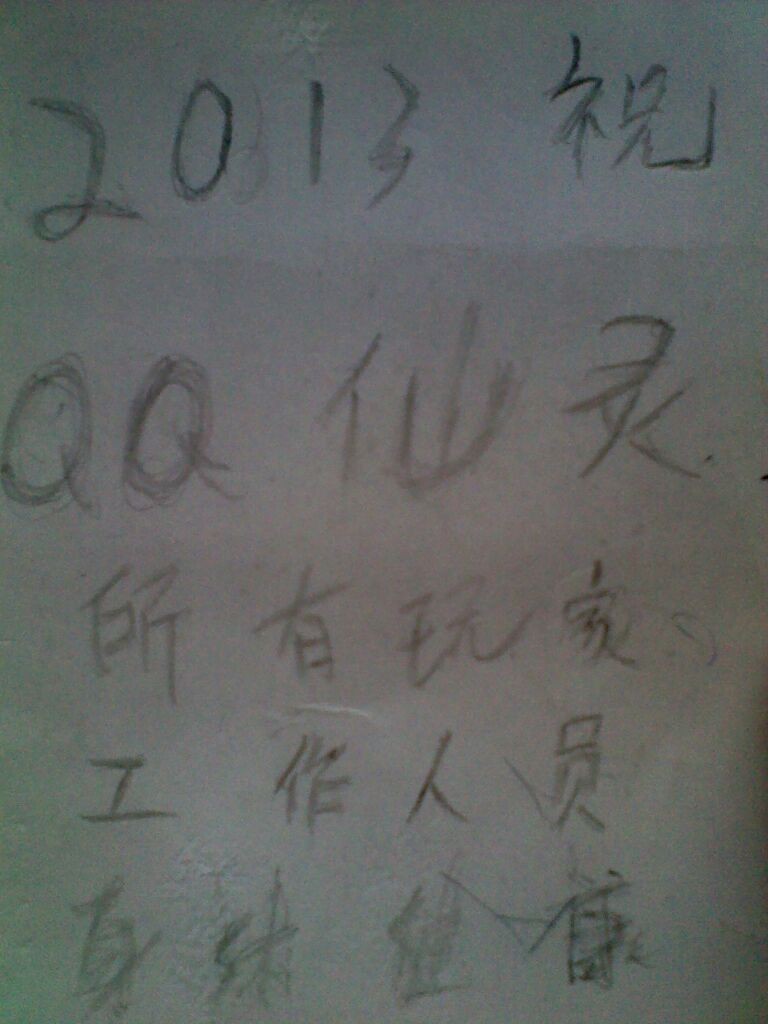 2013 祝
QQ仙灵
所有玩家、
工作人员
身体健康